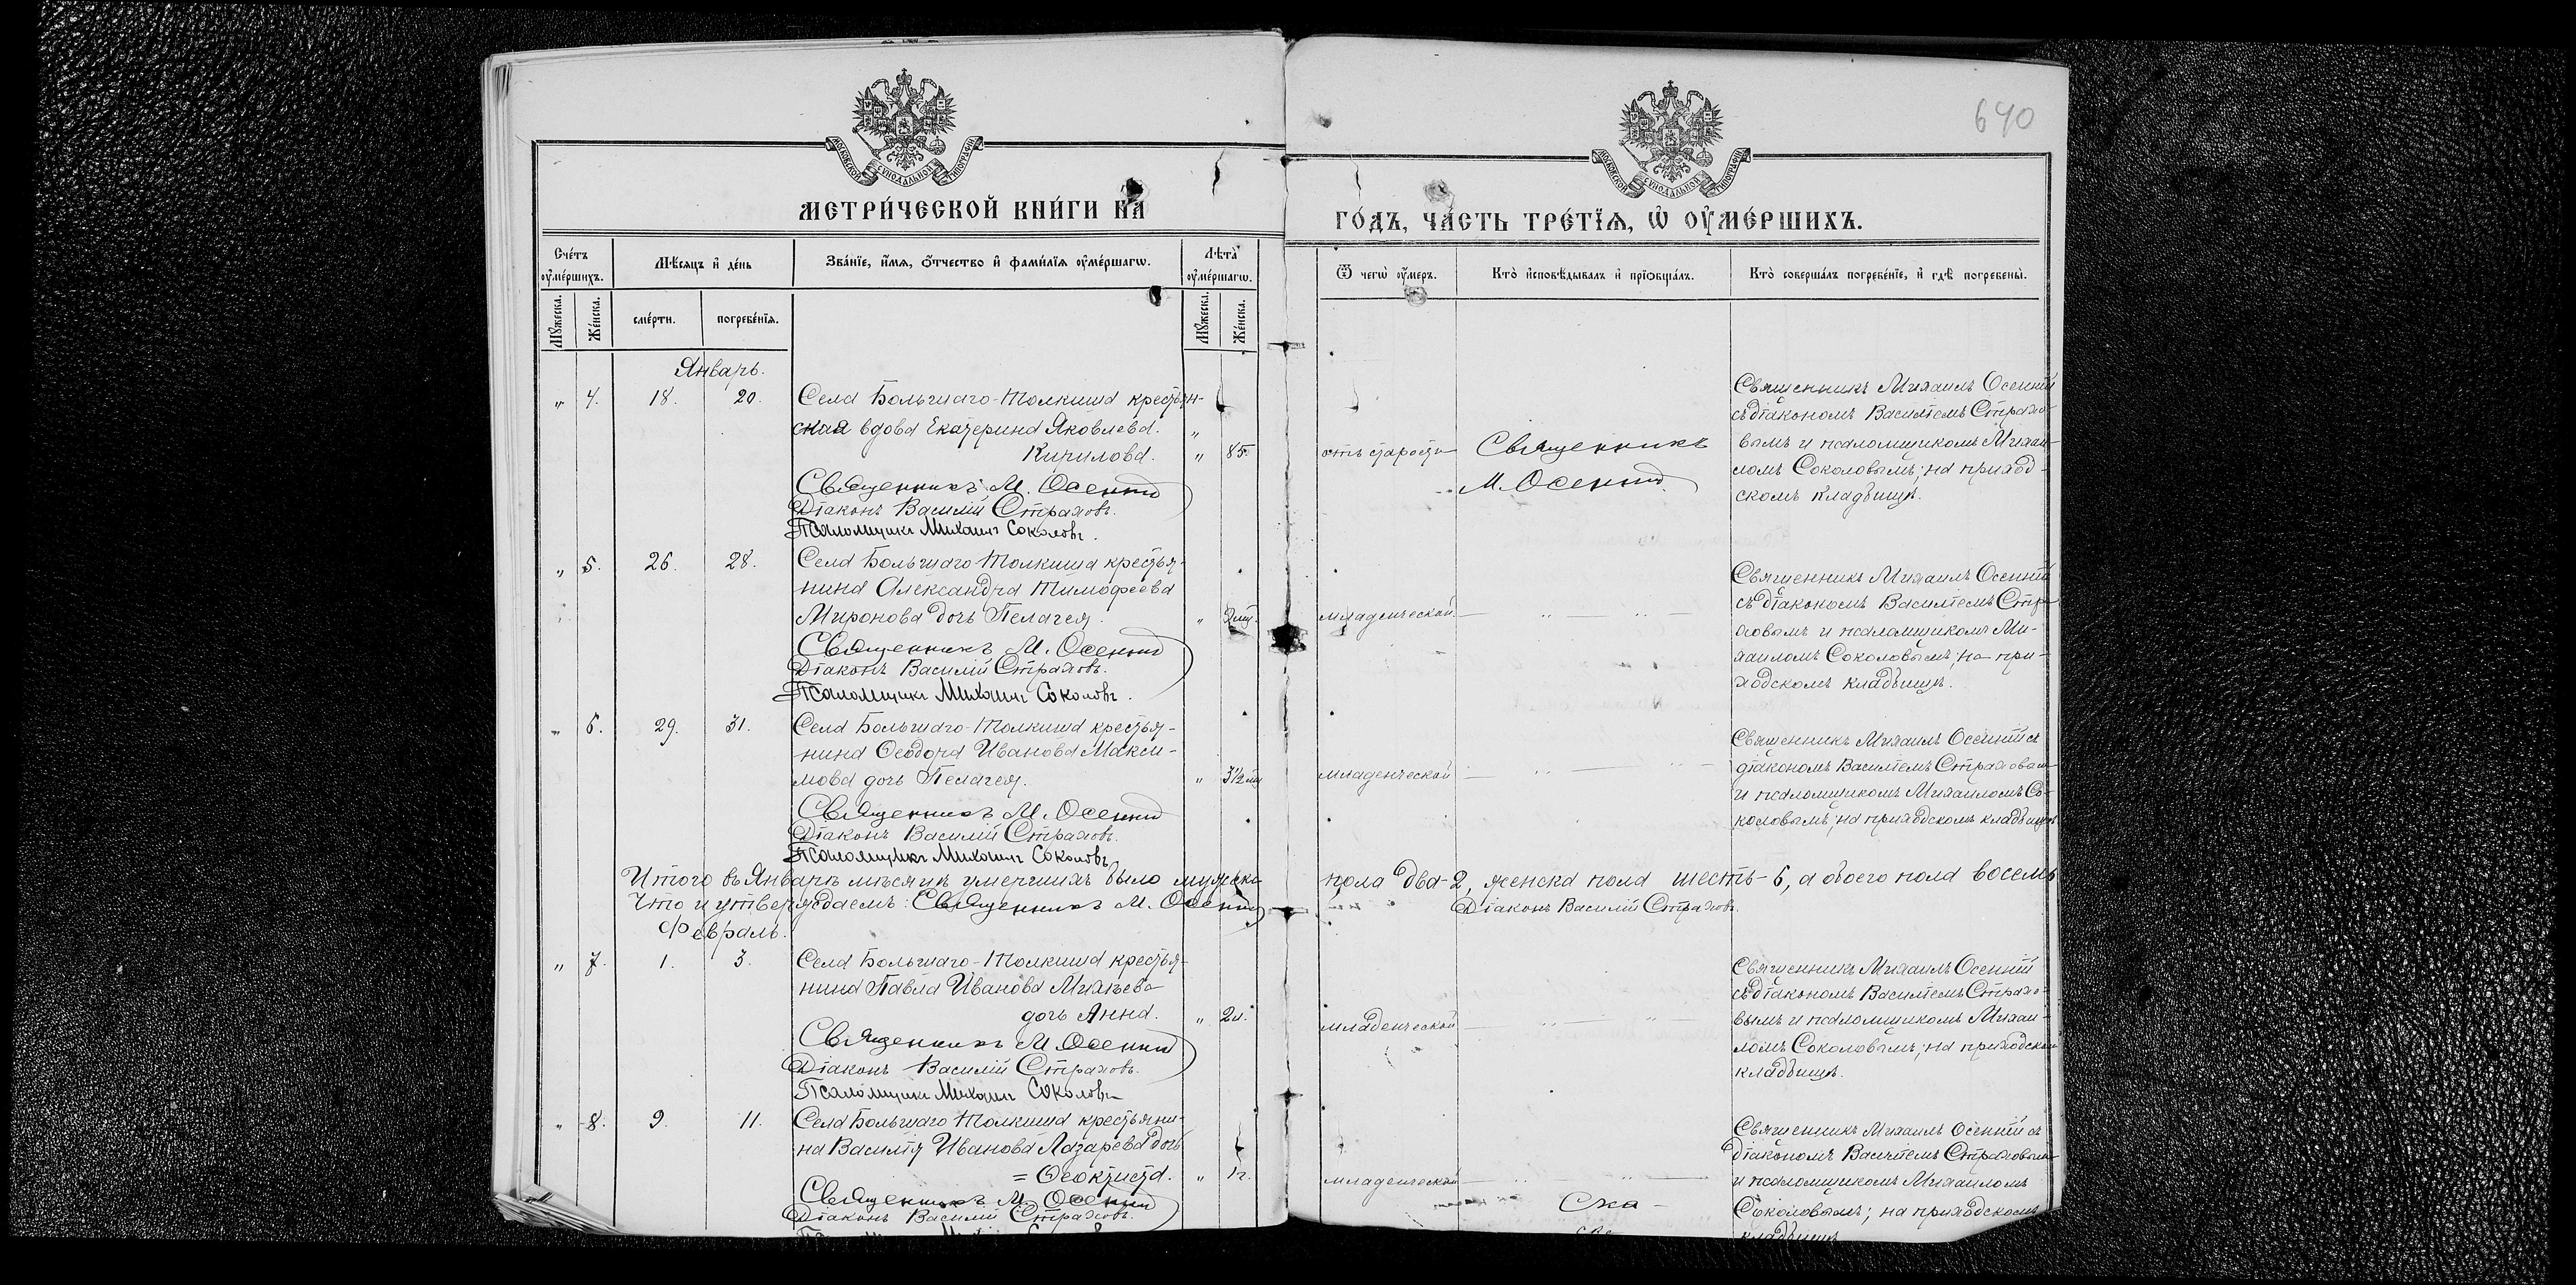 640
МОСКОВСКОЙ СѴНОДАЛЬНОЙ ТИПОГРАФІИ
МОСКОВСКОЙ СѴНОДАЛЬНОЙ ТИПОГРАФІИ
МЕТРИ́ЧЕСКОЙ КНИ́ГИ НА
ГО́ДЪ, ЧА́СТЬ ТРЕ́ТЇѦ, Ѡ҆ ОУ҆МЕ́РШИХЪ.
Сче́тъ оу҆ме́ршихъ.
Мѣ́сяцъ и҆ де́нь
Зва́нїе, и҆́мя, ѻ҆́тчество и҆ фами́лїя оу҆ме́ршагѡ.
Лѣта̀ оу҆ме́ршагѡ.
Ѿ чегѡ̀ оу҆́меръ.
Кто̀ и҆сповѣ́дывалъ и҆ прїѻбща́лъ.
Кто̀ соверша́лъ погребе́нїе, и҆ гдѣ̀ погребены̀.
Мꙋ́жеска.
Же́нска.
сме́рти.
погребе́нїя.
Мꙋ́жеска.
Же́нска.
Январь.
" 4. 18. 20.
Села Большаго-Толкиша крестьян-
ская вдова Екатерина Яковлева "
Кирилова. " 85
Священникъ М. Осенній
Діаконъ Василій Страховъ.
Псаломщикъ Михаилъ Соколовъ.
отъ старости
Священникъ
М. Осенній
Священникъ Михаилъ Осенній
съ діакономъ Василіемъ Страхо-
вымъ и псаломщикомъ Михаи-
ломъ Соколовымъ; на приход-
скомъ кладбищѣ.
" 5. 26. 28.
Села Большаго Толкиша крестья-
нина Александра Тимофеева
Миронова дочь Пелагея. " 2 мѣ.
Священникъ М. Осенній
Діаконъ Василій Страховъ.
Псаломщикъ Михаилъ Соколовъ.
младенческой — " — " —
Священникъ Михаилъ Осенній
съ діакономъ Василіемъ Стра-
ховымъ и псаломщикомъ Ми-
хаиломъ Соколовымъ; на при-
ходскомъ кладбищѣ.
" 6. 29. 31.
Села Большаго-Толкиша крестья-
нина Ѳеодора Иванова Макси-
мова дочь Пелагея. " 3½ мѣ
Священникъ М. Осенній
Діаконъ Василій Страховъ.
Псаломщикъ Михаилъ Соколовъ
младенческой — " — " —
Священникъ Михаилъ Осенній съ
діакономъ Василіемъ Страховым
и псаломщикомъ Михаиломъ Со-
коловымъ; на приходскомъ кладбищѣ
Итого въ Январѣ мѣсяцѣ умершихъ было мужска пола два-2, женска пола шесть-6, а обоего пола восемь
Что и утверждаемъ: Священникъ М. Осенній Діаконъ Василій Страховъ.
Февраль.
" 7. 1. 3.
Села Большаго-Толкиша крестья-
нина Павла Иванова Михѣева
дочь Анна. " 2 л.
Священникъ М. Осенній
Діаконъ Василій Страховъ.
Псаломщикъ Михаилъ Соколовъ
младенческой — " — " —
Священникъ Михаилъ Осенній
съ діакономъ Василіемъ Страхо-
вымъ и псаломщикомъ Михаи-
ломъ Соколовымъ; на приходском
кладбищѣ.
" 8. 9. 11.
Села Большаго Толкиша крестьяни-
на Василія Иванова Лазарева дочь
= Ѳеоктиста. " 1 г.
Священникъ М. Осенній
Діаконъ Василій Страховъ.
младенческой — " — " —
Священникъ Михаилъ Осенній съ
діакономъ Василіемъ Страховым
и псаломщикомъ Михаиломъ
Соколовымъ; на приходскомъ
кладбищѣ